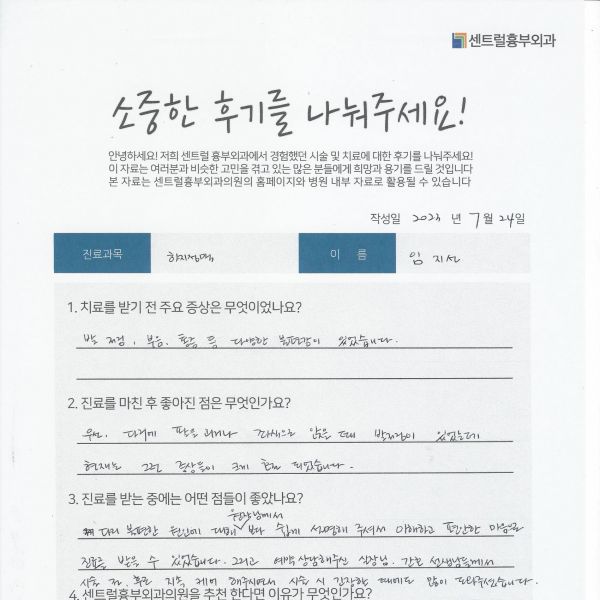 센트럴흉부외과
소중한 후기를 나눠주세요!
안녕하세요! 저희 센트럴 흉부외과에서 경험했던 시술 및 치료에 대한 후기를 나눠주세요!
이 자료는 여러분과 비슷한 고민을 겪고 있는 많은 분들에게 희망과 용기를 드릴 것입니다
본 자료는 센트럴흉부외과의원의 홈페이지와 병원 내부 자료로 활용될 수 있습니다
작성일 2023 년 7 월 24 일
진료과목 하지정맥 이 름 임지선
1. 치료를 받기 전 주요 증상은 무엇이었나요?
발 저림, 부음, 통증 등 다양한 불편감이 있었습니다.
2. 진료를 마친 후 좋아진 점은 무엇인가요?
우선, 다리에 좌식으로 앉을 때 발저림이 있었는데
현재는 그런 증상들이 크게 호전 되었습니다.
3. 진료를 받는 중에는 어떤 점들이 좋았나요?
원장님께서
다리 불편한 원인에 대해 보다 쉽게 설명해 주셔서 이해하고 편안한 마음으로
진료를 받을 수 있었습니다. 그리고 예약 상담해주신 실장님, 간호 선생님들께서
시술 전, 후로 지속 케어 해주시면서 시술 시 긴장한 때에도 많이 도와주셨습니다.
4. 센트럴흉부외과의원을 추천 한다면 이유가 무엇인가요?